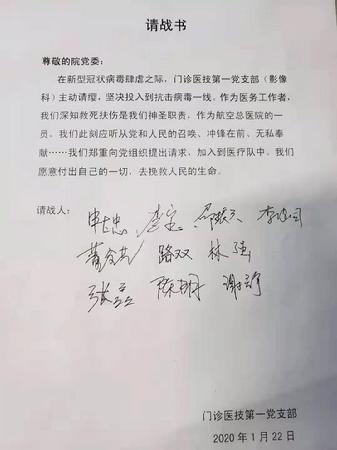 请战书
尊敬的院党委：
在新型冠状病毒肆虐之际，门诊医技第一党支部（影像
科）主动请缨，坚决投入到抗击病毒一线。作为医务工作者，
我们深知救死扶伤是我们神圣职责。作为航空总医院的一
员，我们此刻应听从党和人民的召唤、冲锋在前、无私奉
献……我们郑重向党组织提出请求，加入到医疗队中。我们
愿意付出自己的一切，去挽救人民的生命。
请战人：
路双 林强
陈明
门诊医技第一党支部
2020 年 1 月 22 日